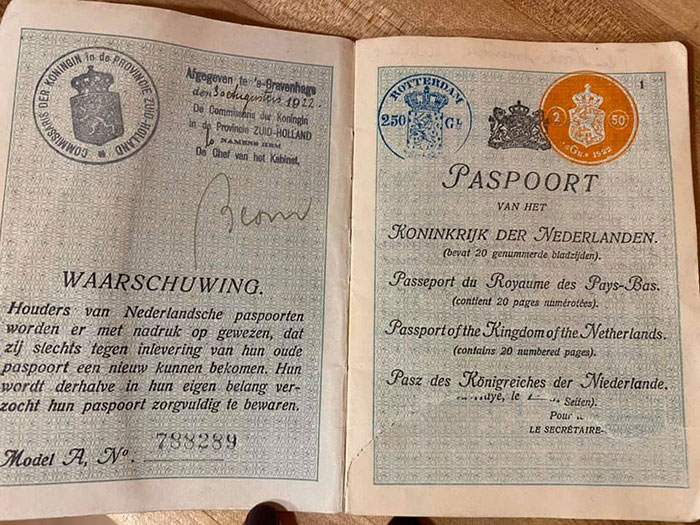 COMMISSARIS DER KONINGIN in de PROVINCIE ZUID-HOLLAND
Afgegeven te 's-Gravenhage
den 30 Augustus 1922.
De Commissaris der Koningin
in de Provincie ZUID-HOLLAND
NAMENS HEM
De Chef van het Kabinet,
WAARSCHUWING.
Houders van Nederlandsche paspoorten
worden er met nadruk op gewezen, dat
zij slechts tegen inlevering van hun oude
paspoort een nieuw kunnen bekomen. Hun
wordt derhalve in hun eigen belang ver-
zocht hun paspoort zorgvuldig te bewaren.
Model A, No. 788289
1
ROTTERDAM
250 Gl.
2 50
1922
PASPOORT
VAN HET
KONINKRIJK DER NEDERLANDEN.
(bevat 20 genummerde bladzijden).
Passeport du Royaume des Pays-Bas.
(contient 20 pages numérotées).
Passport of the Kingdom of the Netherlands.
(contains 20 numbered pages).
Pasz des Königreiches der Niederlande.
Seiten).
le
Pour
LE SECRÉTAIRE-